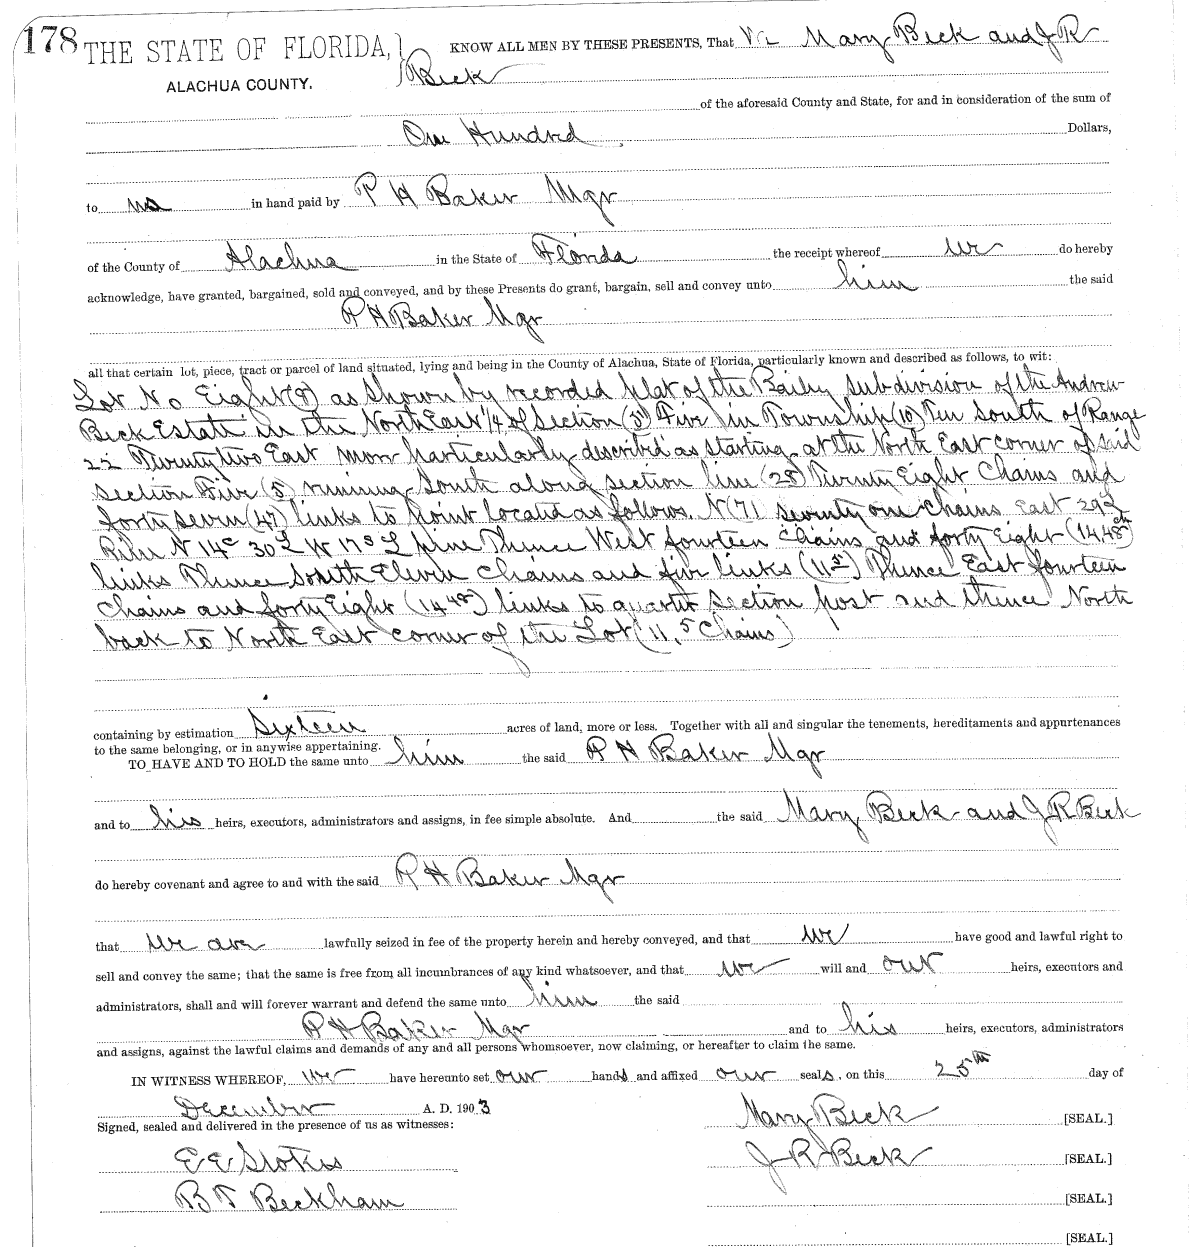 178 THE STATE OF FLORIDA, } KNOW ALL MEN BY THESE PRESENTS, That We Mary Beck and J R
ALACHUA COUNTY. Beck
of the aforesaid County and State, for and in consideration of the sum of
One Hundred Dollars,
to us in hand paid by P H Baker Mgr
of the County of Alachua in the State of Florida the receipt whereof we do hereby
acknowledge, have granted, bargained, sold and conveyed, and by these Presents do grant, bargain, sell and convey unto him the said
P H Baker Mgr
all that certain lot, piece, tract or parcel of land situated, lying and being in the County of Alachua, State of Florida, particularly known and described as follows, to wit:
Lot No Eight (8) as shown by recorded plat of the Baily subdivision of the Andrew
Beck Estate in the North East 1/4 of Section (5) Five in Township (10) Ten South of Range
22 Twenty two East more particularly described as starting at the North East corner of said
section Five (5) running South along section line (28) Twenty Eight Chains and
forty seven (47) links to point located as follows. N (71) seventy one Chains East 29 L
N 14° 30 L W 17 S L pine Thence West fourteen chains and forty Eight (14 48)
links Thence South Eleven Chains and five links (11 5) Thence East fourteen
Chains and forty Eight (14 48) links to quarter section post and thence North
back to North East corner of the Lot (11, 5 Chains)
containing by estimation Sixteen acres of land, more or less. Together with all and singular the tenements, hereditaments and appurtenances
to the same belonging, or in anywise appertaining.
TO HAVE AND TO HOLD the same unto him the said P H Baker Mgr
and to his heirs, executors, administrators and assigns, in fee simple absolute. And the said Mary Beck and J R Beck
do hereby covenant and agree to and with the said P H Baker Mgr
that we are lawfully seized in fee of the property herein and hereby conveyed, and that we have good and lawful right to
sell and convey the same; that the same is free from all incumbrances of any kind whatsoever, and that we will and our heirs, executors and
administrators, shall and will forever warrant and defend the same unto him the said
P H Baker Mgr and to his heirs, executors, administrators
and assigns, against the lawful claims and demands of any and all persons whomsoever, now claiming, or hereafter to claim the same.
IN WITNESS WHEREOF, we have hereunto set our hands and affixed our seals, on this 25th day of
December A. D. 1903
Signed, sealed and delivered in the presence of us as witnesses:
Mary Beck [SEAL.]
E E Stokes
J R Beck [SEAL.]
B T Beckham
[SEAL.]
[SEAL.]